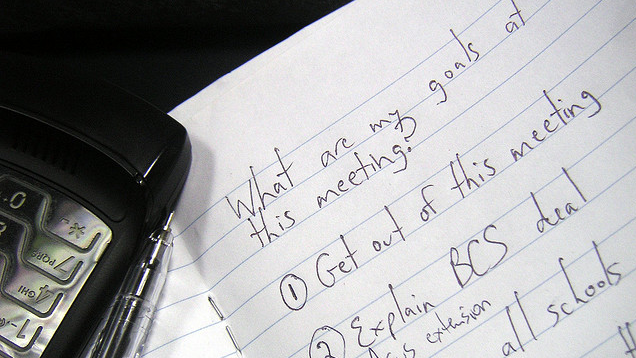 What are my goals at
this meeting?
① Get out of this meeting
② Explain BCS deal
extension
all schools
*-.
0
7PQRS
4GHI
1